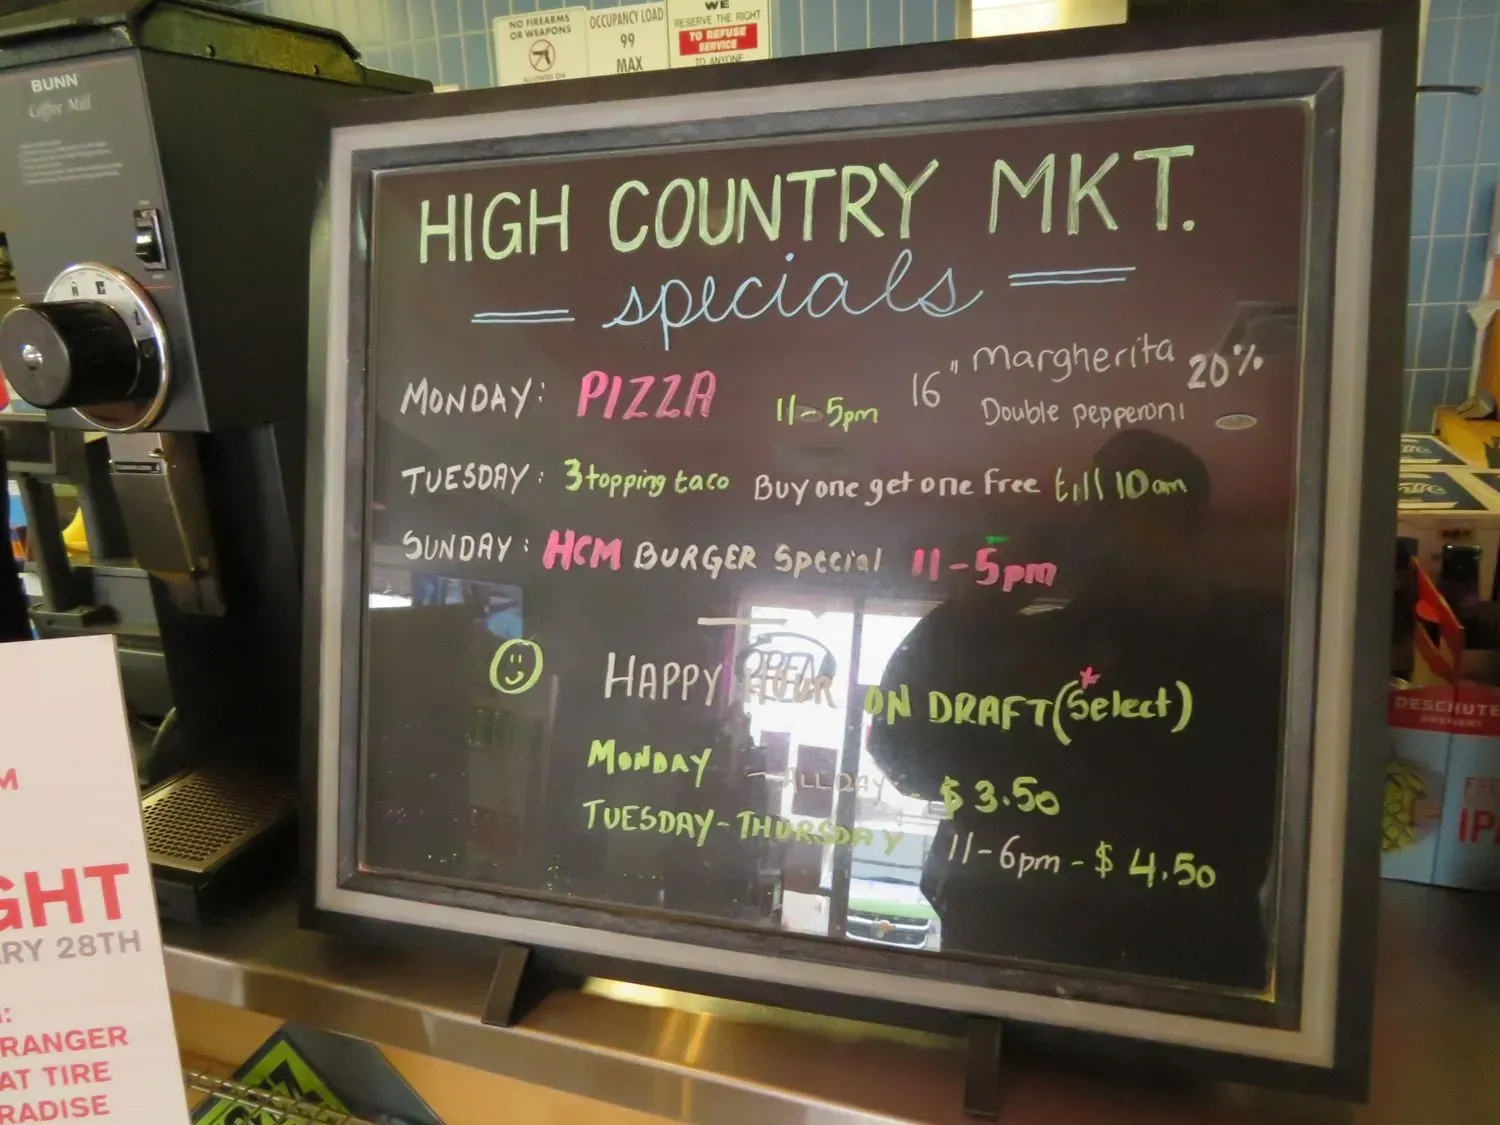 BUNN
Coffee Mill
NO FIREARMS
OR WEAPONS
ALLOWED ON
OCCUPANCY LOAD
99
MAX
WE
RESERVE THE RIGHT
TO REFUSE
SERVICE
TO ANYONE
HIGH COUNTRY MKT.
specials
MONDAY: PIZZA 11-5pm 16" Margherita 20%
Double pepperoni
TUESDAY: 3 topping taco Buy one get one free till 10am
SUNDAY: HCM BURGER Special 11-5pm
OPEN
HAPPY HOUR ON DRAFT (Select)*
MONDAY - ALL DAY - $3.50
TUESDAY-THURSDAY 11-6pm - $4.50
M
GHT
ARY 28TH
RANGER
AT TIRE
RADISE
DESCHUTE
BREWERY
FRE
IP